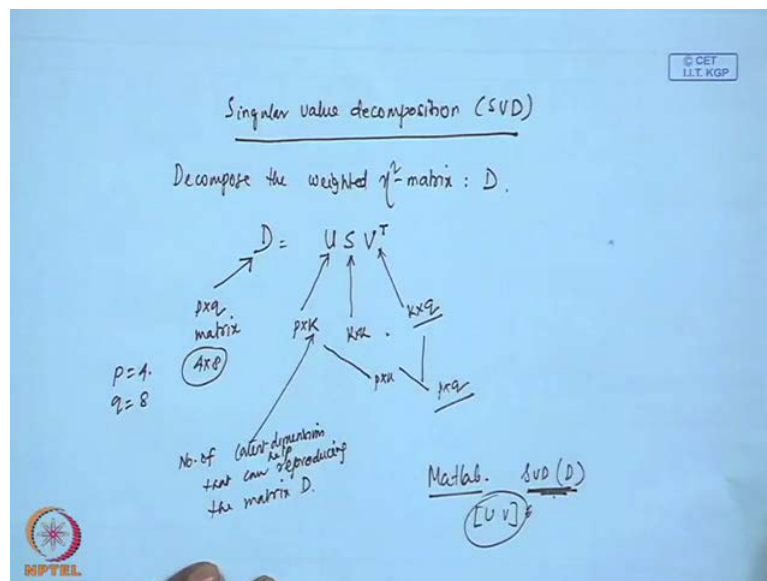 © CET
I.I.T. KGP
Singular value decomposition (SVD)
Decompose the weighted χ²-matrix : D.
D = U S Vᵀ
p×q
matrix
4×8
p×K
K×K .
K×q
p=4.
q=8
p×K
p×q
No. of latent-dimension
that can help reproducing
the matrix D.
Matlab. SVD (D)
[U V] =
NPTEL